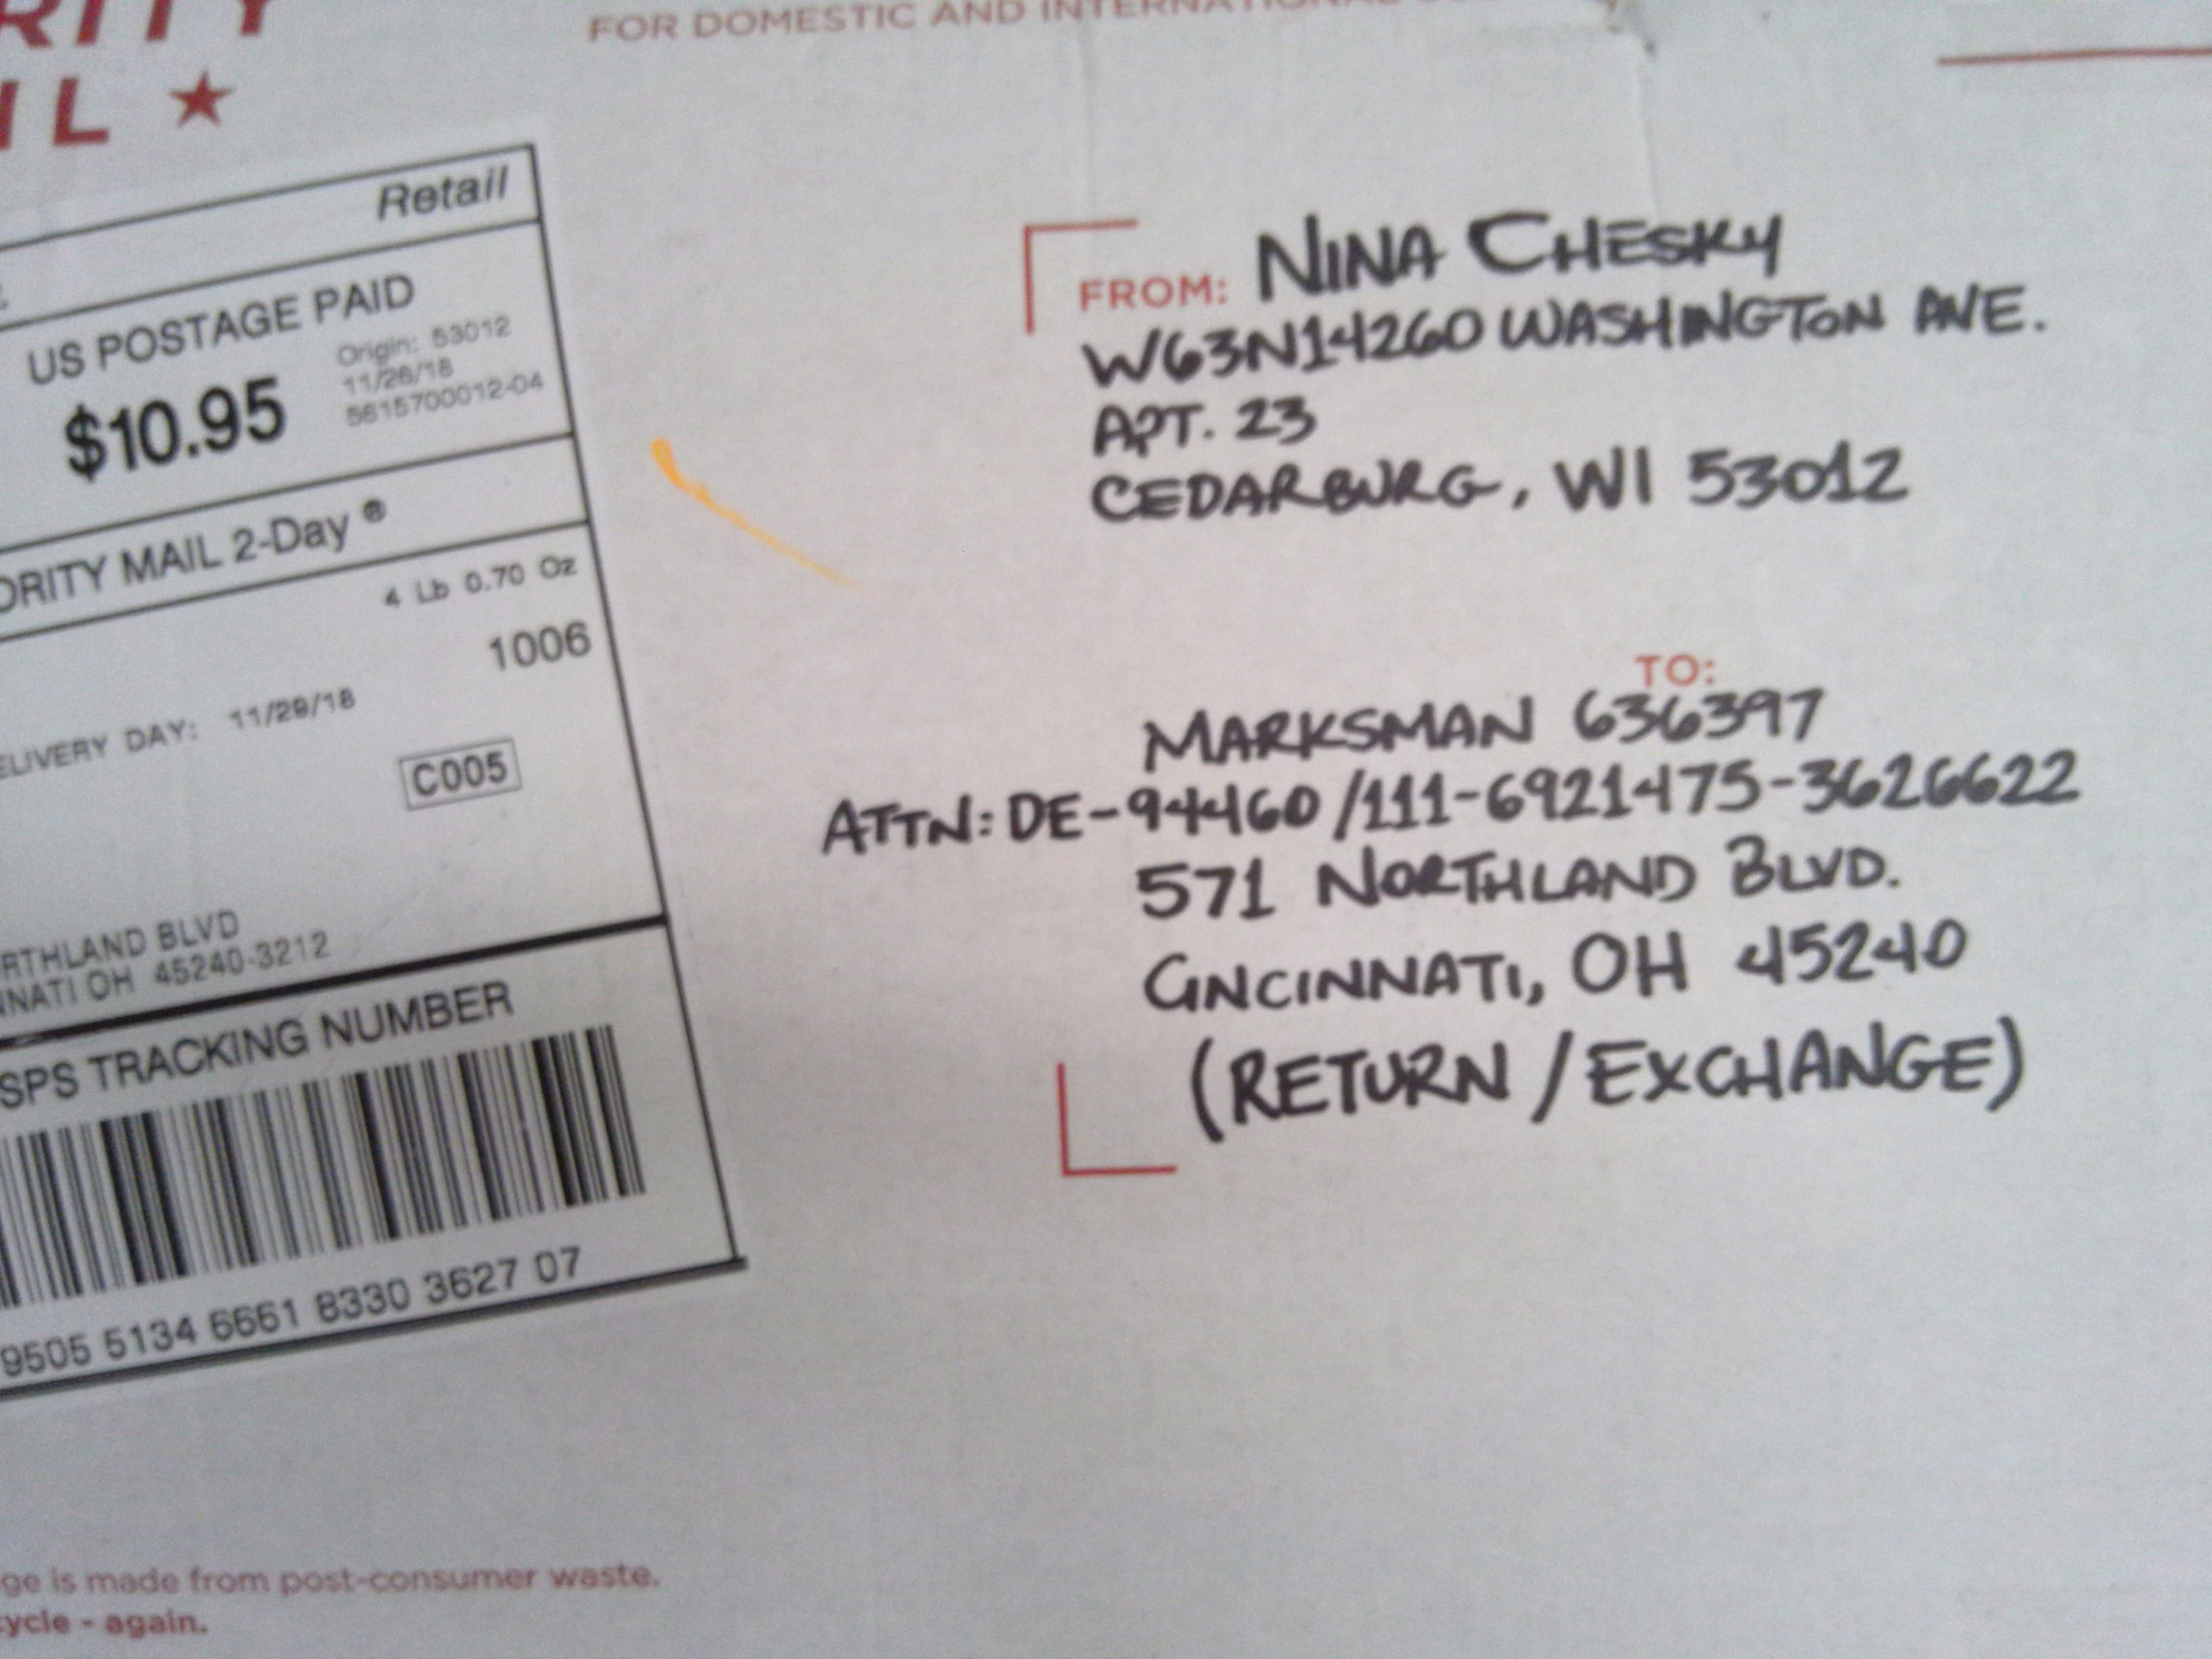 FOR DOMESTIC AND INTERNATIONAL
Retail
US POSTAGE PAID
$10.95
Origin: 53012
11/26/18
5615700012-04
MAIL 2-Day ®
4 Lb 0.70 Oz
1006
DAY: 11/29/18
C005
BLVD
OH 45240-3212
TRACKING NUMBER
9505 5134 6661 8330 3627 07
FROM: NINA CHESKY
W63N14260 WASHINGTON AVE.
APT. 23
CEDARBURG, WI 53012
TO:
MARKSMAN 636397
ATTN: DE-94460/111-6921475-3626622
571 NORTHLAND BLVD.
CINCINNATI, OH 45240
(RETURN/EXCHANGE)
is made from post-consumer waste.
- again.